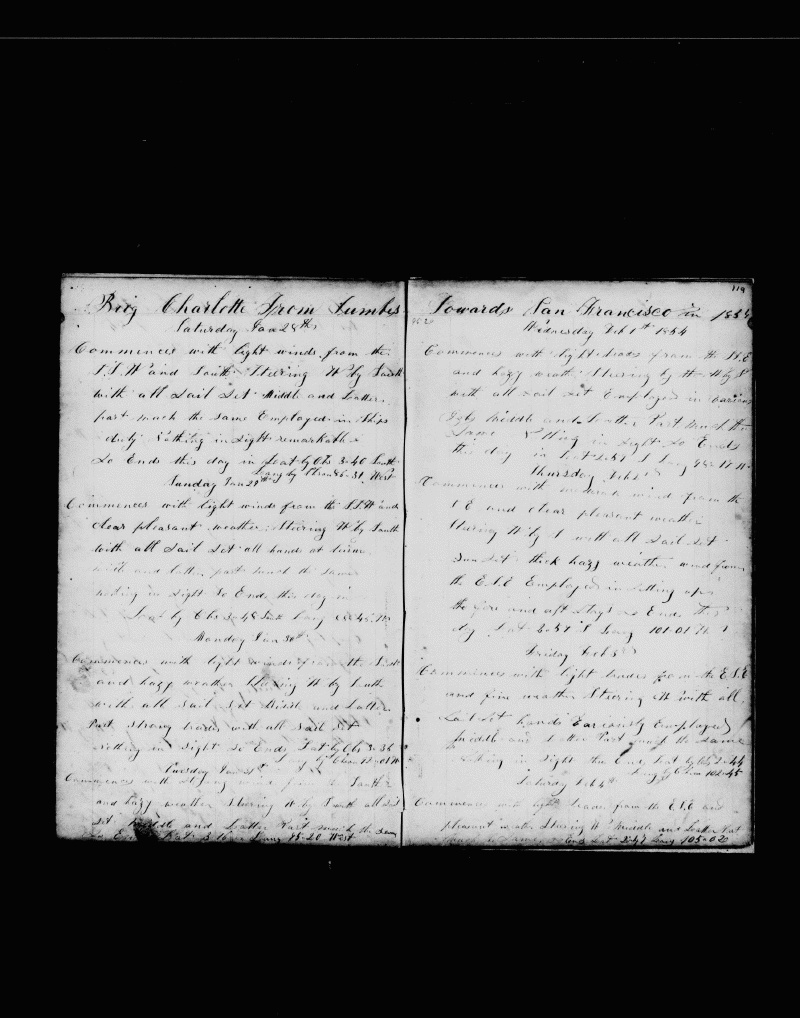 Brig Charlotte From Tumbes
Saturday Jan 28th
Commences with light winds from the
S.S.W and South Steering W by South
with all Sail Set Middle and Latter
part much the same Employed in Ships
duty Nothing in Sight remarkable
So Ends this day in Leat by Obs 3-40 South
Long by Chron 86-31 West
Sunday Jan 29th
Commences with light winds from the S.S.W and
clear pleasant weather Steering W by South
with all Sail Set all hands at
and latter part much the same
nothing in Sight So Ends this day in
Leat by Obs 3-48 South Long
Monday Jan 30th
Commences with light winds from the
and hazy weather Steering W by South
with all Sail Set Middle and Latter
Part Strong with all Sail Set
nothing in Sight So Ends Lat by Obs 3-36
Long by Chron
Tuesday Jan 31st
Commences with wind from the South
and hazy weather Steering W by S with all Sail
Set Middle and Latter Part much the same
So Ends Lat 3 Long 95-20 West
119
Towards San Francisco in 1854
Wednesday Feb 1st 1854
Commences with light from the S.E
and hazy weath Steering by W by S
with all Sail Set Employed in various
Middle and Latter Part much the
Same Nothing in Sight So Ends
this day in Lat Long
Thursday Feb 2
Commences with wind from the
S E and clear pleasant weather
Steering W by S with all Sail Set
Sun Set thick hazy weather wind from
the E.S.E Employed in Setting up
the fore and aft Stays So Ends this
day Lat 2-57 S Long 101-01 W
Friday Feb 3
Commences with light from the E.S.E
and fine weather Steering W with all
Sail Set hands Variously Employed
Middle and Latter Part much the same
nothing in Sight thus Ends Lat by Obs 2-44
Long by Chron 102-45
Saturday Feb 4th
Commences with light from the E.S.E and
pleasant weather Steering W Middle and Latter Part
Ends Lat 2-47 Long 105-02